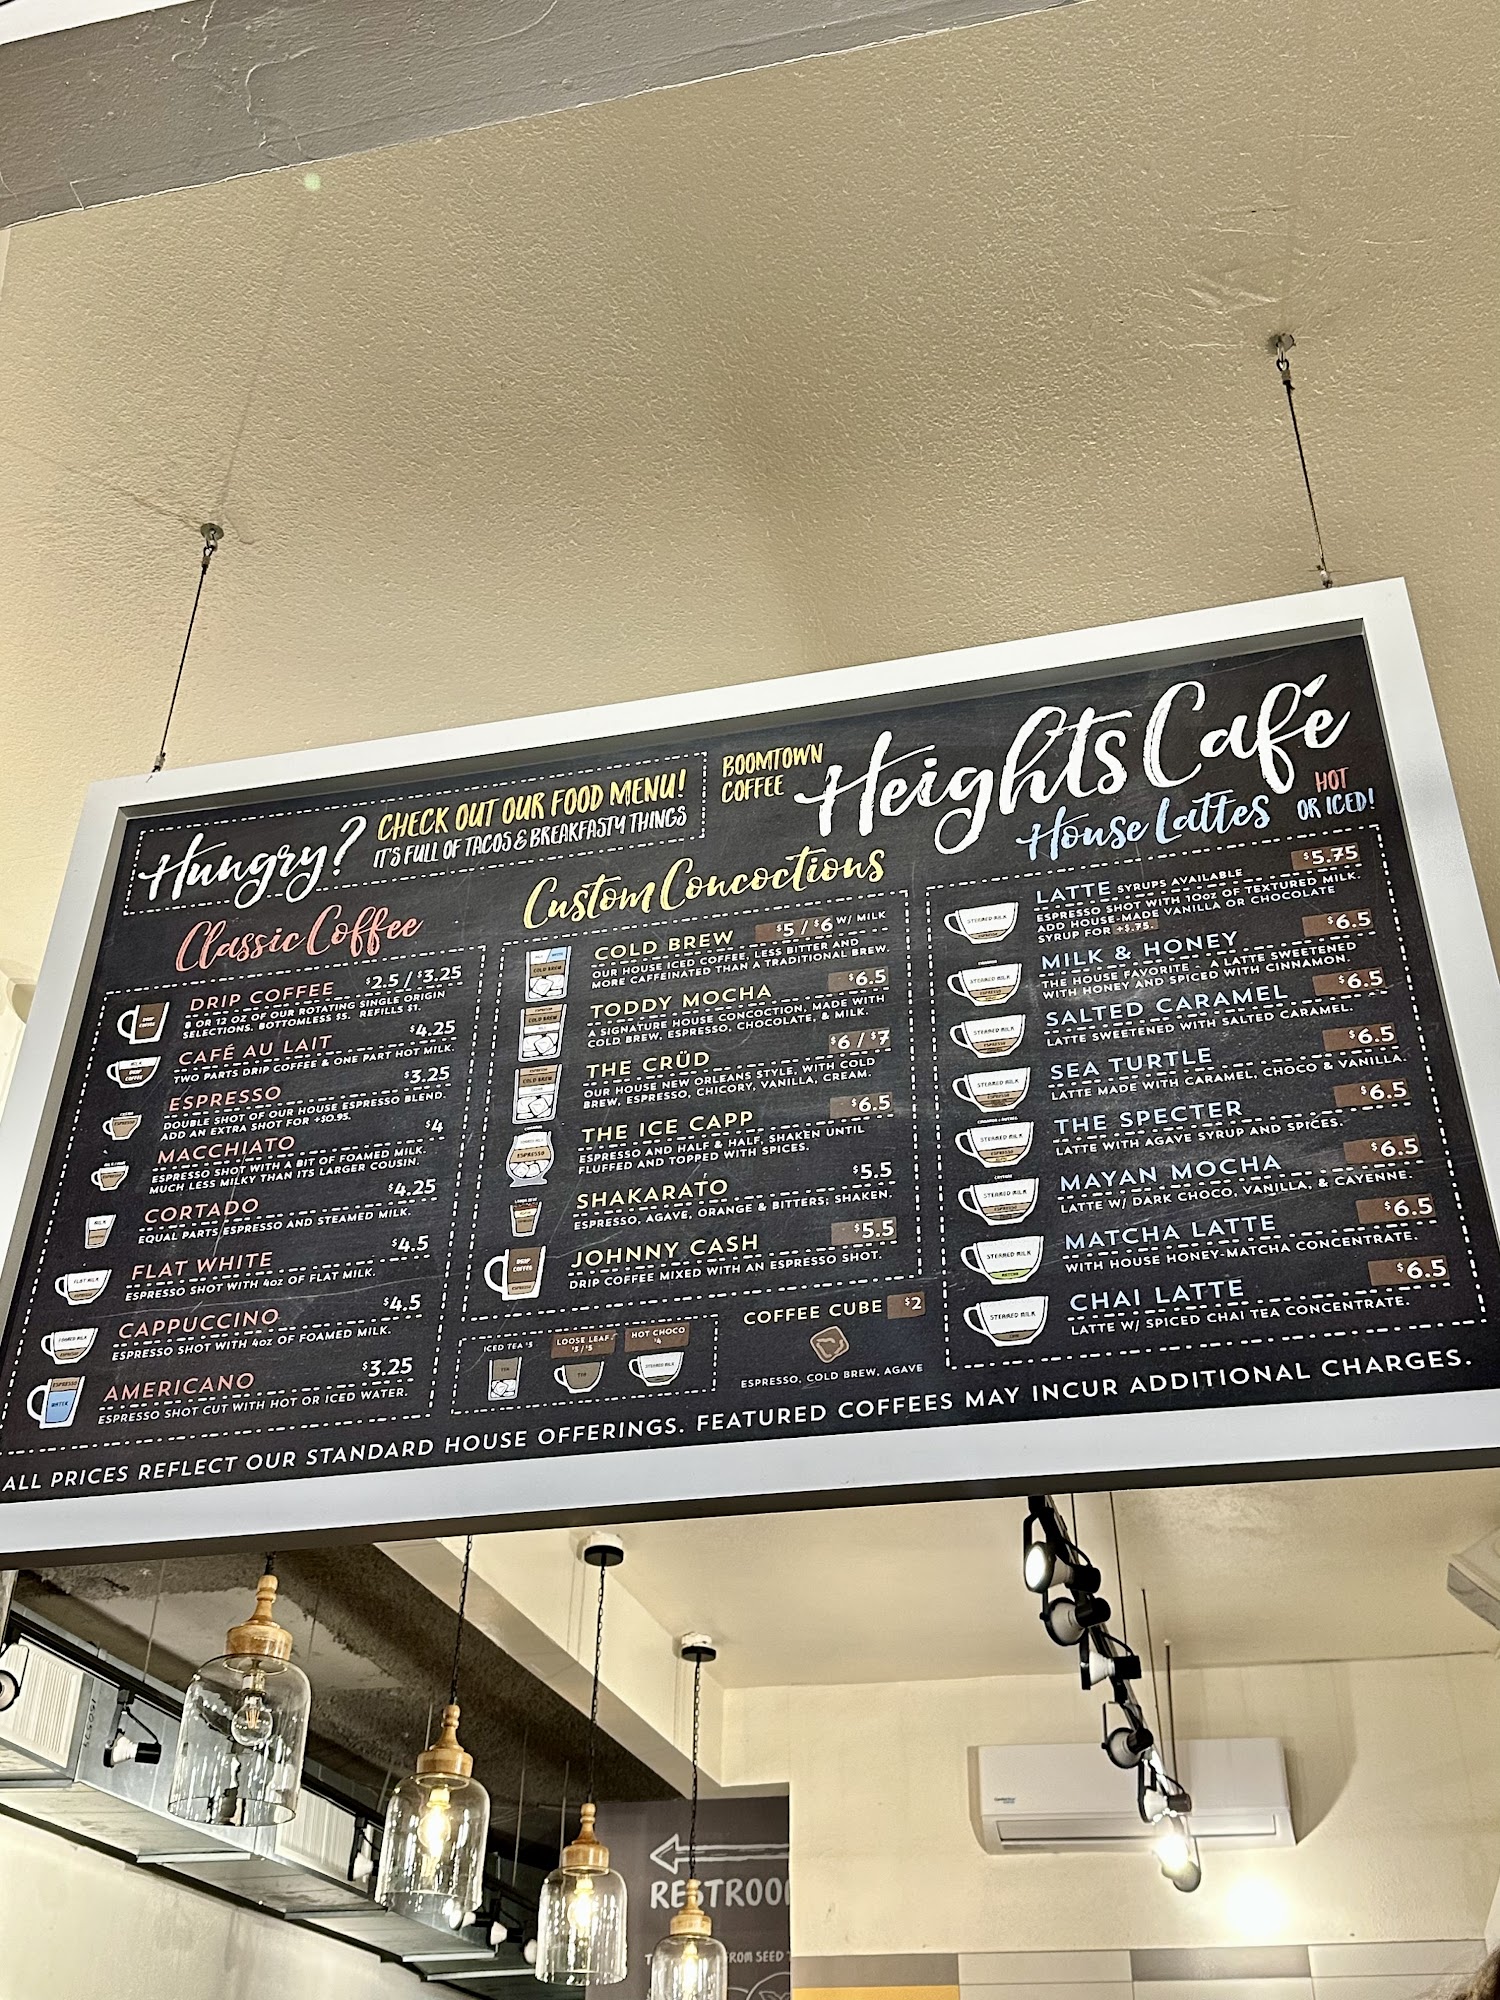 Hungry?
CHECK OUT OUR FOOD MENU!
IT'S FULL OF TACOS & BREAKFASTY THINGS
BOOMTOWN
COFFEE
Heights Café
Classic Coffee
DRIP COFFEE $2.5 / $3.25
8 OR 12 OZ OF OUR ROTATING SINGLE ORIGIN
SELECTIONS. BOTTOMLESS $5. REFILLS $1.
CAFÉ AU LAIT $4.25
TWO PARTS DRIP COFFEE & ONE PART HOT MILK.
ESPRESSO $3.25
DOUBLE SHOT OF OUR HOUSE ESPRESSO BLEND.
ADD AN EXTRA SHOT FOR +$0.95.
MACCHIATO $4
ESPRESSO SHOT WITH A BIT OF FOAMED MILK.
MUCH LESS MILKY THAN ITS LARGER COUSIN.
CORTADO $4.25
EQUAL PARTS ESPRESSO AND STEAMED MILK.
FLAT WHITE $4.5
ESPRESSO SHOT WITH 4OZ OF FLAT MILK.
CAPPUCCINO $4.5
ESPRESSO SHOT WITH 4OZ OF FOAMED MILK.
AMERICANO $3.25
ESPRESSO SHOT CUT WITH HOT OR ICED WATER.
Custom Concoctions
COLD BREW $5 / $6 W/ MILK
OUR HOUSE ICED COFFEE, LESS BITTER AND
MORE CAFFEINATED THAN A TRADITIONAL BREW.
TODDY MOCHA $6.5
A SIGNATURE HOUSE CONCOCTION, MADE WITH
COLD BREW, ESPRESSO, CHOCOLATE, & MILK.
THE CRÜD $6 / $7
OUR HOUSE NEW ORLEANS STYLE, WITH COLD
BREW, ESPRESSO, CHICORY, VANILLA, CREAM.
THE ICE CAPP $6.5
ESPRESSO AND HALF & HALF, SHAKEN UNTIL
FLUFFED AND TOPPED WITH SPICES.
SHAKARATO $5.5
ESPRESSO, AGAVE, ORANGE & BITTERS; SHAKEN.
JOHNNY CASH $5.5
DRIP COFFEE MIXED WITH AN ESPRESSO SHOT.
ICED TEA $3
LOOSE LEAF $3 / $5
HOT CHOCO $4
COFFEE CUBE $2
ESPRESSO, COLD BREW, AGAVE
House Lattes
HOT
OR ICED!
LATTE SYRUPS AVAILABLE $5.75
ESPRESSO SHOT WITH 10OZ OF TEXTURED MILK.
ADD HOUSE-MADE VANILLA OR CHOCOLATE
SYRUP FOR +$.75.
MILK & HONEY $6.5
THE HOUSE FAVORITE - A LATTE SWEETENED
WITH HONEY AND SPICED WITH CINNAMON.
SALTED CARAMEL $6.5
LATTE SWEETENED WITH SALTED CARAMEL.
SEA TURTLE $6.5
LATTE MADE WITH CARAMEL, CHOCO & VANILLA.
THE SPECTER $6.5
LATTE WITH AGAVE SYRUP AND SPICES.
MAYAN MOCHA $6.5
LATTE W/ DARK CHOCO, VANILLA, & CAYENNE.
MATCHA LATTE $6.5
WITH HOUSE HONEY-MATCHA CONCENTRATE.
CHAI LATTE $6.5
LATTE W/ SPICED CHAI TEA CONCENTRATE.
ALL PRICES REFLECT OUR STANDARD HOUSE OFFERINGS. FEATURED COFFEES MAY INCUR ADDITIONAL CHARGES.
RESTROO
ROM SEED